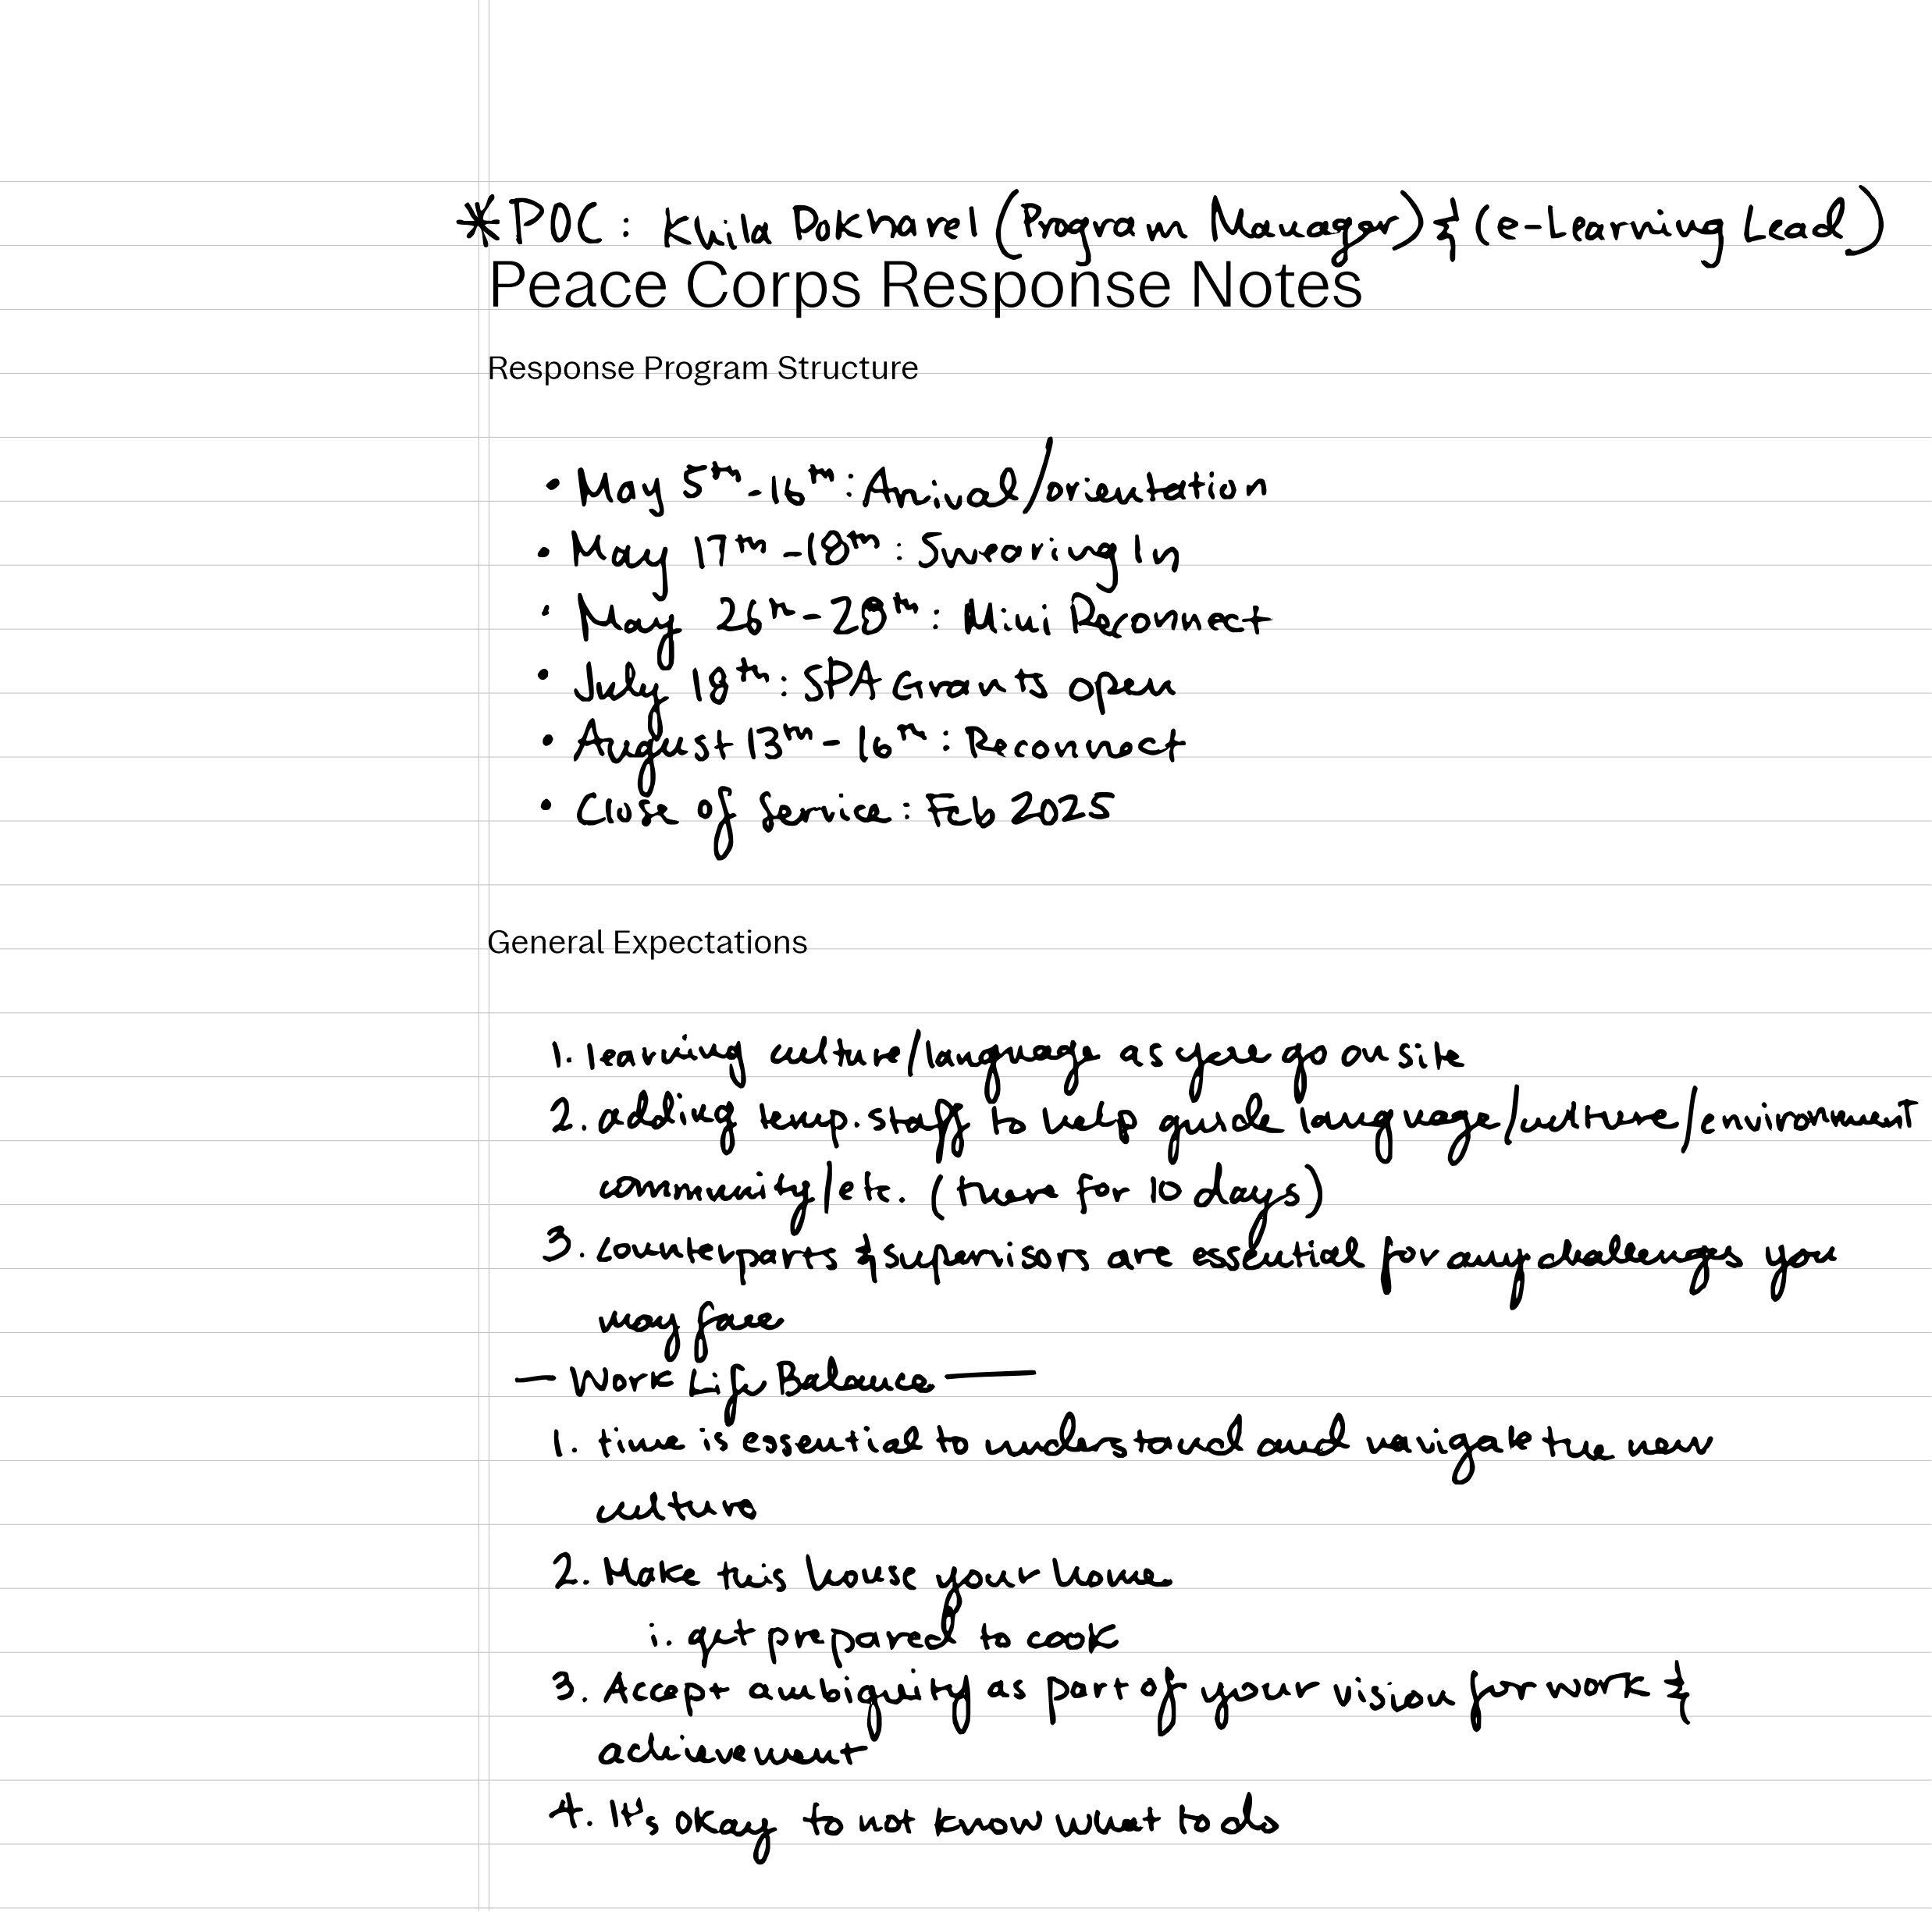 *POC: Khila Pokharel (Program Manager) & (e-Learning Lead)
Peace Corps Response Notes
Response Program Structure
• May 5th-16th: Arrival/orientation
• May 17th-18th: Swearing In
• May 26th-28th: Mini Reconnect
• July 18th: SPA Grants open
• August 13th-16th: Reconnect
• Close of Service: Feb 2025
General Expectations
1. learning culture/language as you go on site
2. adding temp. staff to help guide language/culture/environment
community/etc. (there for 10 days)
3. counterparts & supervisors are essential for any challenges you
may face
— Work Life Balance —
1. time is essential to understand and navigate the new
culture
2. Make this house your home
i. get prepared to cook
3. Accept ambiguity as part of your vision for work &
achievement
4. It's okay to not know what to do